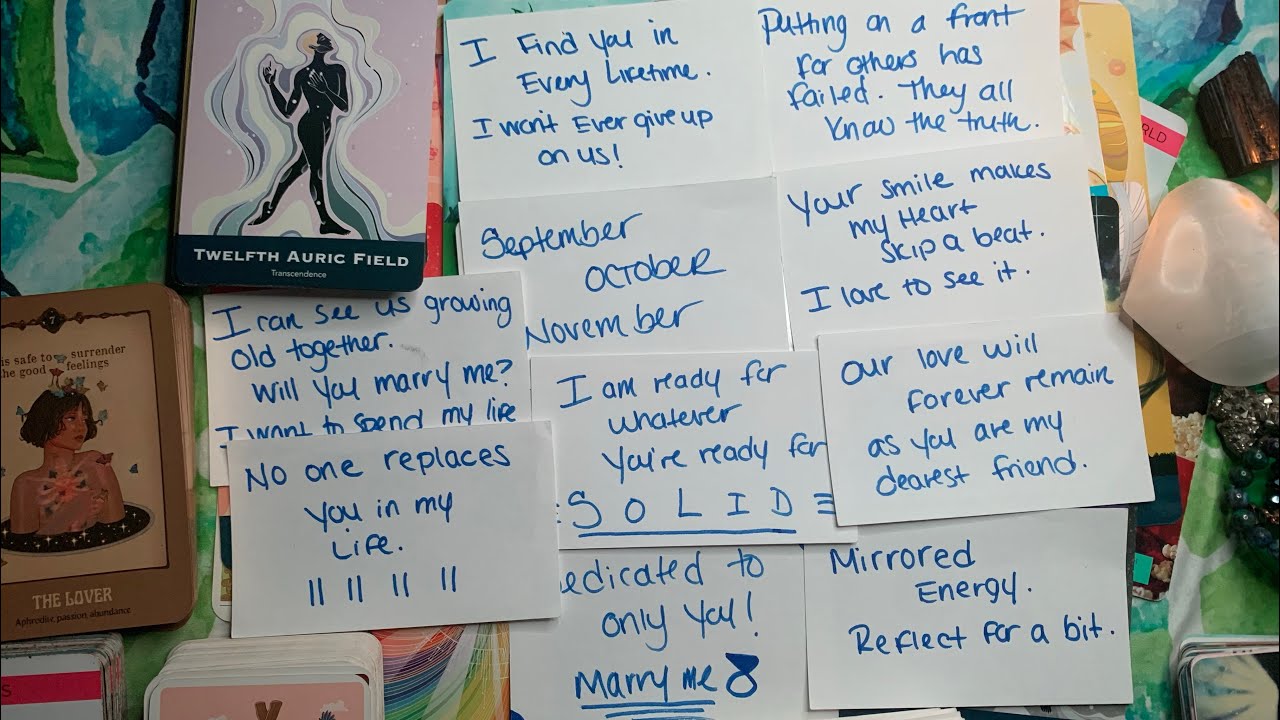 I Find you in
Every Lifetime.
I won't Ever give up
on us!
Putting on a front
for others has
failed. They all
know the truth.
TWELFTH AURIC FIELD
Transcendence
September
October
November
Your smile makes
my Heart
skip a beat.
I love to see it.
I can see us growing
old together.
Will you marry me?
I want to spend my life
I am ready for
whatever
you're ready for
SOLID
Our love will
forever remain
as you are my
dearest friend.
7
is safe to surrender
the good feelings
THE LOVER
Aphrodise, passion, abundance
No one replaces
you in my
Life.
11 11 11 11
edicated to
only you!
Marry me
Mirrored
Energy.
Reflect for a bit.
RLD
S